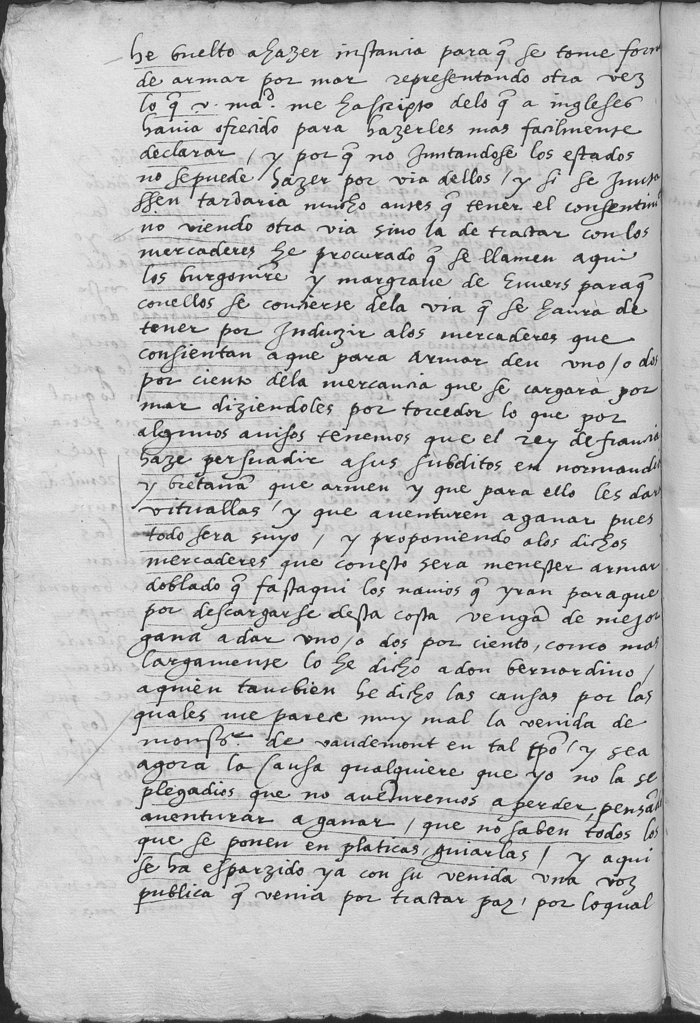 he buelto a hazer instancia para q̃ se tome form
de armar por mar representando otra vez
lo q̃ v. mad. me ha scripto delo q̃ a ingleses
havia ofrecido para hazerles mas facilmente
declarar / y por q̃ no Juntandose los estados
no sepuede hazer por via dellos / y si se Junta
ssen tardaria mucho antes q̃ tener el consentimi
no viendo otra via sino la de tractar con los
mercaderes he procurado q̃ se llamen aqui
los burgomre y margrave de Envers para q̃
conellos se concierte dela via q̃ se haura de
tener por Induzir alos mercaderes que
consientan a que para armar den uno / o dos
por ciento dela mercancia que se cargara por
mar diziendoles por torcedor lo que por
algunos avisos tenemos que el rey de francia
haze persuadir a sus subditos en normandia
y bretaña que armen y que para ello les dara
vituallas / y que aventuren a ganar pues
todo sera suyo / y proponiendo alos dichos
mercaderes que conesto sera menester armar
doblado q̃ fastaqui los navios q̃ yran para que
por descargarse desta costa vengã de mejor
gana a dar uno / o dos por ciento, como mas
largamente lo he dicho a don bernardino /
a quien tambien he dicho las causas por las
quales me parece muy mal la venida de
monsr. de vaudemont en tal tpõ / y sea
agora la causa qualquiere que yo no la se
plegadios que no aventuremos a perder, pensãdo
aventurar a ganar / que no saben todos los
que se ponen en platicas, guiarlas / y aqui
se ha esparzido ya con su venida una voz
publica q̃ venia por tractar paz, por loqual